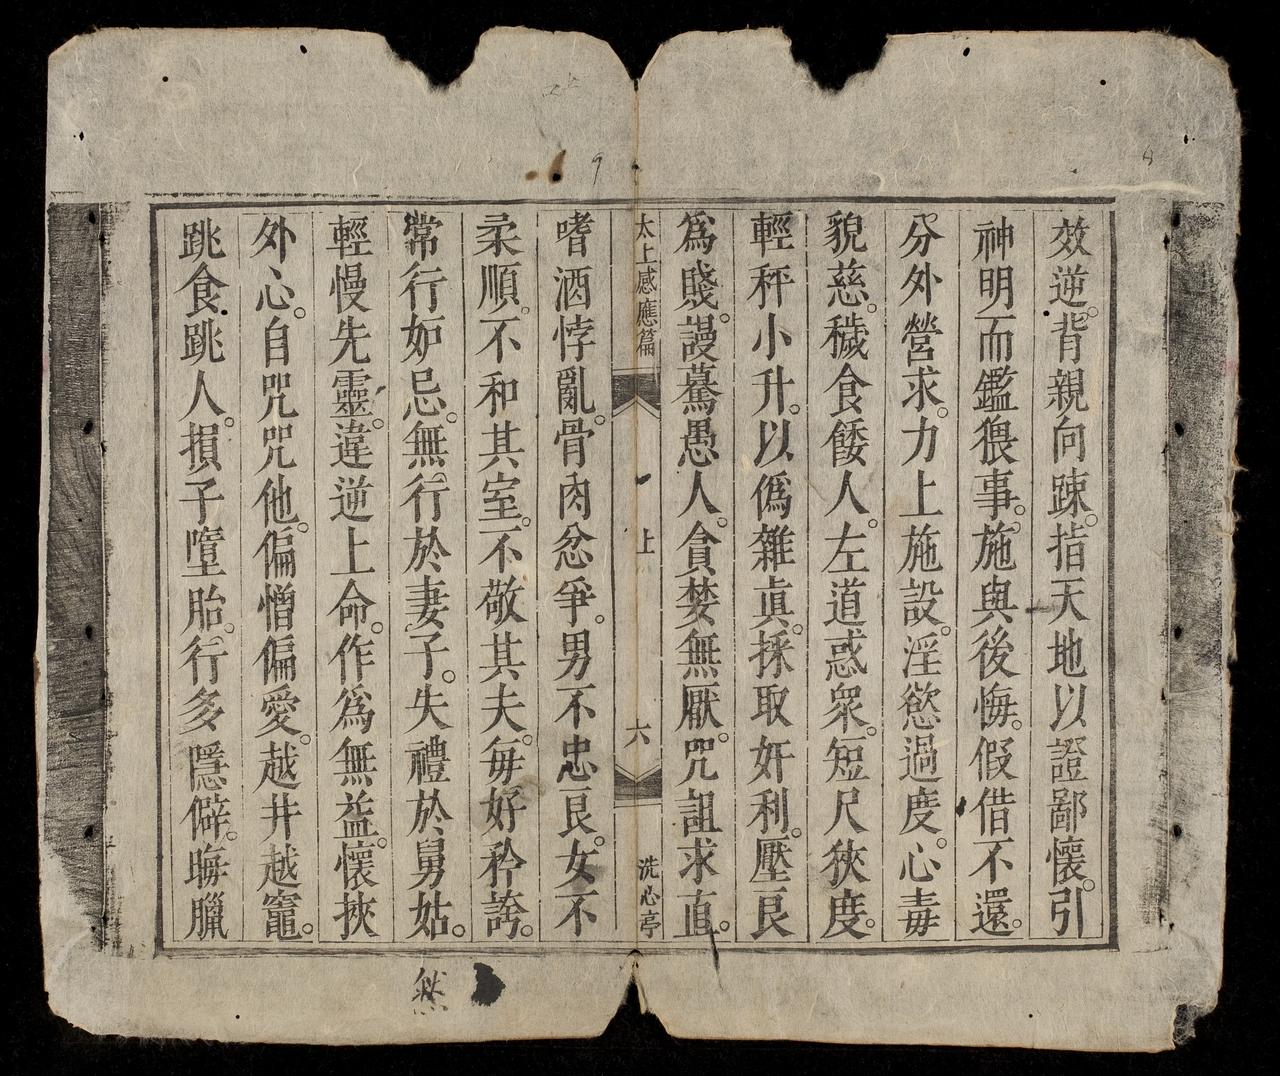 效逆。背親向疎。指天地以證鄙懷。引
神明而鑑猥事。施與後悔。假借不還。
分外營求。力上施設。淫慾過度。心毒
貌慈。穢食餧人。左道惑衆。短尺狹度。
輕秤小升。以僞雜眞。採取奸利。壓良
爲賤。謾驀愚人。貪婪無厭。咒詛求直。
太上感應篇 上 六 洗心亭
嗜酒悖亂。骨肉忿爭。男不忠良。女不
柔順。不和其室。不敬其夫。每好矜誇。
常行妒忌。無行於妻子。失禮於舅姑。
輕慢先靈。違逆上命。作爲無益。懷挾
外心。自咒咒他。偏憎偏愛。越井越竈。
跳食跳人。損子墮胎。行多隱僻。晦臘
然
9